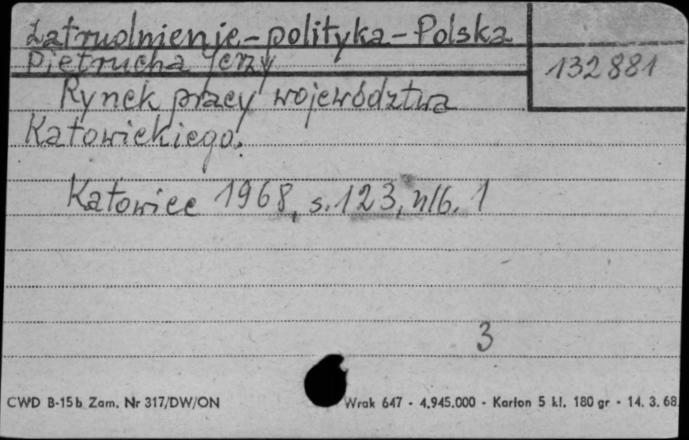 Zatrudnienie - polityka - Polska
132881
Pietrucha Jerzy
Rynek pracy województwa
Katowickiego.
Katowice 1968, s. 123, nlb. 1
3
CWD B-15b Zam. Nr 317/DW/ON Wrak 647 - 4.945.000 - Karton 5 kl. 180 gr - 14. 3. 68